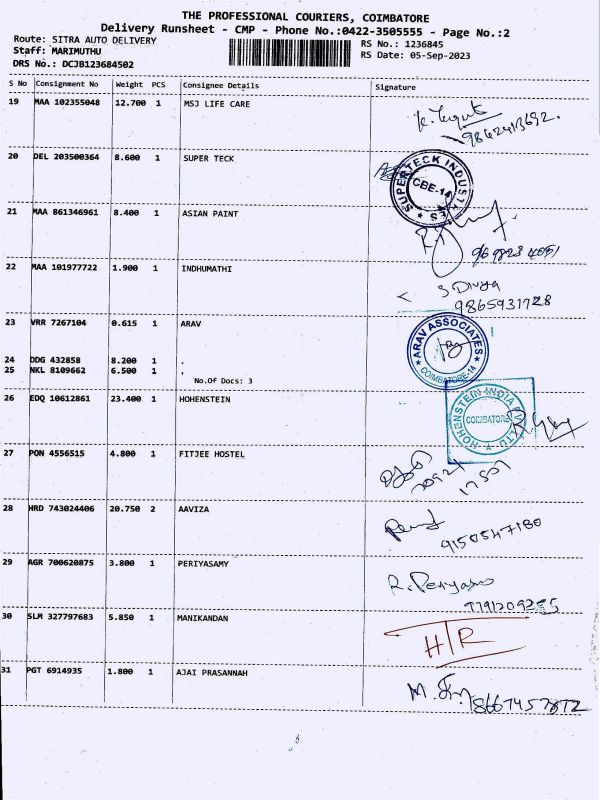 THE PROFESSIONAL COURIERS, COIMBATORE
Delivery Runsheet - CMP - Phone No.:0422-3505555 - Page No.:2
Route: SITRA AUTO DELIVERY
Staff: MARIMUTHU
DRS No.: DCJB123684502
RS No.: 1236845
RS Date: 05-Sep-2023
S No Consignment No Weight PCS Consignee Details Signature
19 MAA 102355048 12.700 1 MSJ LIFE CARE
9862413692.
20 DEL 203500364 8.600 1 SUPER TECK
SUPERTECK INDUSTRIES
CBE-14
21 MAA 861346961 8.400 1 ASIAN PAINT
22 MAA 101977722 1.900 1 INDHUMATHI
S Divya
9865931728
23 VRR 7267104 0.615 1 ARAV
ARAV ASSOCIATES
COIMBATORE-14
24 DDG 432858 8.200 1 .
25 NKL 8109662 6.500 1 .
No.Of Docs: 3
26 EDQ 10612861 23.400 1 HOHENSTEIN
HOHENSTEIN INDIA PVT LTD
COIMBATORE
27 PON 4556515 4.800 1 FITJEE HOSTEL
28 HRD 743024406 20.750 2 AAVIZA
9150547180
29 AGR 700620875 3.800 1 PERIYASAMY
30 SLM 327797683 5.850 1 MANIKANDAN
H/R
31 PGT 6914935 1.800 1 AJAI PRASANNAH